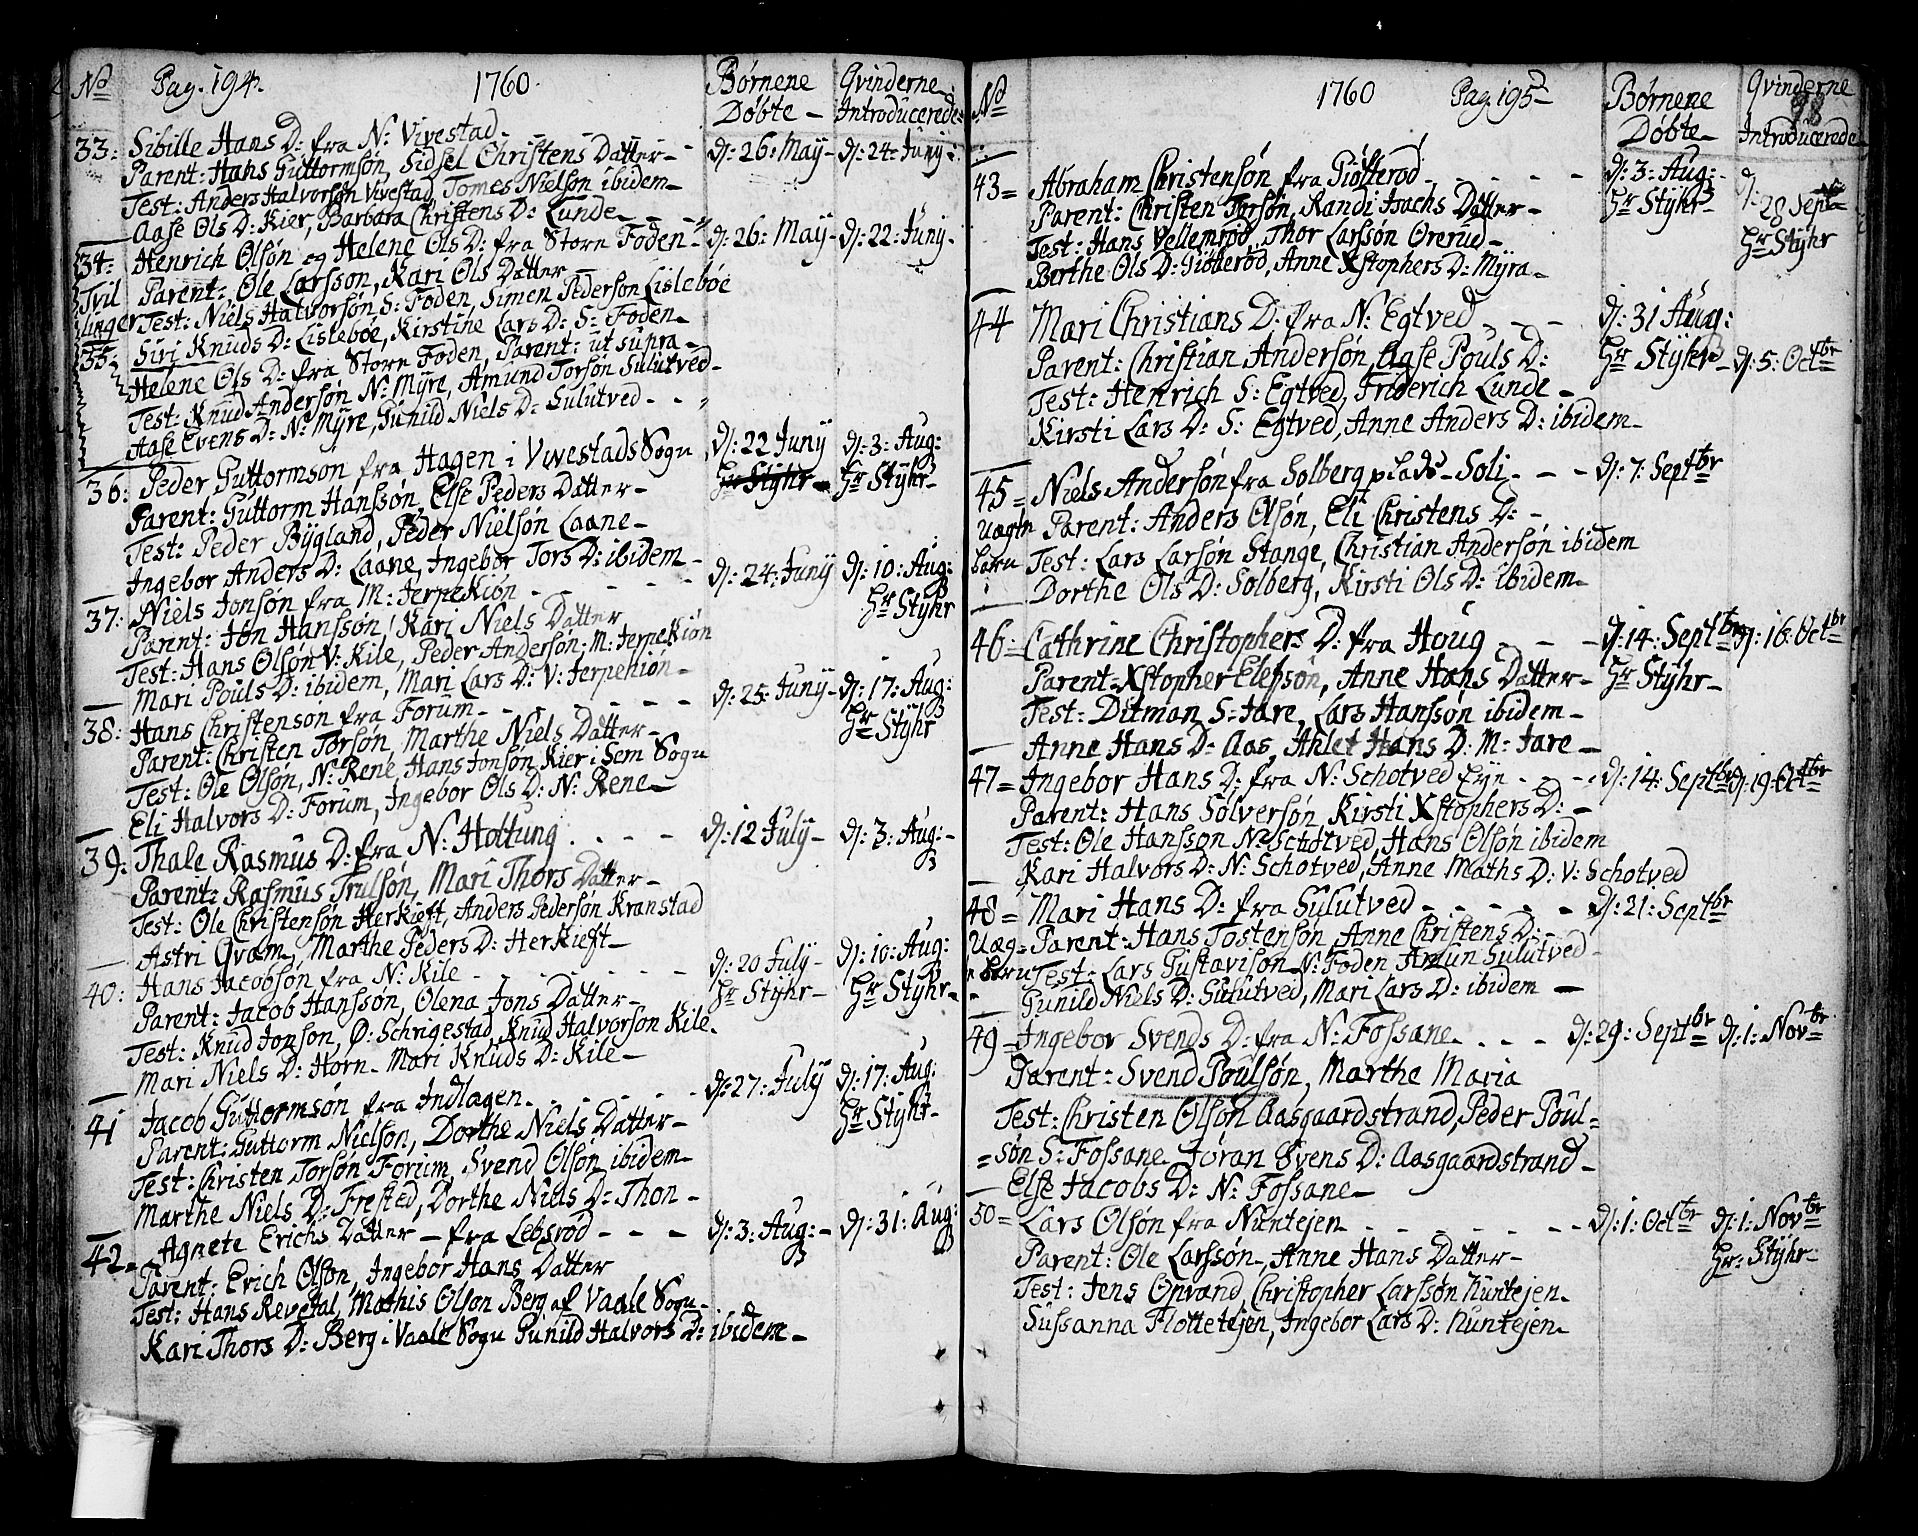 No Pag. 194. 1760 Børnene Døbte - Qvinderne Introducerede:
33: Sibille Hans D: fra N: Vivestad - d: 26: May - d: 24: Juny:
Parent: Hans Guttormsøn, Sidsel Christens Datter -
Test: Anders Halvorsøn Vivestad, Tomes Nielsøn ibidem -
Aase Ols D: Kier, Barbara Christens D: Lunde -
34: Henrich Olsøn og Helene Ols D: fra Store Foden - d: 26: May - d: 22: Juny -
Tvil Parent: Ole Larsson, Kari Ols Datter
linger Test: Niels Halvorsøn S: Foden, Simen Pedersøn Lislebøe
Siri Knuds D: Lislebøe, Kirstine Lars D: S: Foden -
35: Helene Ols D: fra Store Foden, Parent: ut supra -
Test: Knud Andersøn N: Myre, Amund Torsøn Sulutved -
Aase Evens D: N: Myre, Gunild Niels D: Sulutved - -
36: Peder Guttormsøn fra Hagen i Vivestads Sogn d: 22 Juny d: 3: Aug:
Parent: Guttorm Hanssøn, Else Peders Datter - Hr Styhr - Hr Styhr -
Test: Peder Bÿgland, Peder Nielsøn Laane -
Ingebor Anders D: Laane, Ingebor Tors D: ibidem -
37: Niels Jonsøn fra M: Jerpekiøn - - - d: 24: Juny d: 10: Aug:
Parent: Jøn Hansson, Kari Niels Datter Hr Styhr
Test: Hans Olsøn V: Kile, Peder Andersøn: M: Jerpekiøn
Mari Pouls D: ibidem, Mari Lars D: V: Jerpekiøn -
38: Hans Christensøn fra Forum - - - d: 25: Juny - d: 17: Aug:
Parent: Christen Torsøn, Marthe Niels Datter - Hr Styhr
Test: Ole Olsøn, N: Rene, Hans Jonsøn Kier i Sem Sogn
Eli Halvors D: Forum, Ingebor Ols D: N: Rene -
39: Thale Rasmus D: fra N: Holtung . - - d: 12 July - d: 3: Aug: -
Parent: Rasmus Trulsøn, Mari Thors Datter -
Test: Ole Christensøn Herkieft, Anders Pedersøn Kranstad
Astri Qvam, Marthe Peders D: Herkieft -
40: Hans Jacobsøn fra N: Kile - - - d: 20 July - d: 10: Aug:
Parent: Jacob Hanssøn, Olena Jons Datter - Hr Styhr - Hr Styhr -
Test: Knud Jonson, Ø: Schrigestad, Knud Halvorson Kile.
Mari Niels D: Horn - Mari Knuds D: Kile -
41 Jacob Guttormsøn fra Indlagen - - - d: 27: July d: 17: Aug:
Parent: Guttorm Nielsøn, Dorthe Niels Datter - Hr Styhr -
Test: Christen Torsøn Forum, Svend Olsøn ibidem -
Marthe Niels D: Frested, Dorthe Niels D: Thon -
42 - Agnete Erichs Datter - fra Lebsrod - - - d: 3: Aug: - d: 31: Aug:
Parent: Erich Olsøn, Ingebor Hans Datter
Test: Hans Revetal, Mathis Olsøn Berg af Vaale Sogn -
Kari Thors D: Berg i Vaale Sogn Gunild Halvors D: ibidem -
No 1760 Pag. 195 Børnene Døbte - Qvinderne Introducerede
98
43 = Abraham Christensøn fra Giøsterød - - - d: 3: Aug: - d: 28 Sept
Parent: Christen Torsøn, Randi Isachs Datter - Hr Styhr - Hr Styhr
Test: Hans Vellemrød, Thor Larssøn Orerud -
Berthe Ols D: Giøterød, Anne Xstophers D: Myra -
44 Mari Christians D: fra N: Egtved - - - d: 31 Aug:
Parent: Christian Andersøn, Aase Pouls D: Hr Styhr - d: 5: Octbr
Test: Henrich S: Egtved, Friderich Lunde -
Kirsti Lars D: S: Egtved, Anne Anders D: ibidem -
45 = Niels Andersøn fra Solberg plads - Soli - - - d: 7: Septbr
Uægte Parent: Anders Olsøn, Eli Christens D: -
barn Test: Lars Larsøn Stange, Christian Andersøn ibidem
Dorthe Ols D: Solberg, Kirsti Ols D: ibidem -
46 - Cathrine Christophers D: fra Houg - - - d: 14: Septbr d: 16: Octbr
Parent: Xstopher Elefsøn, Anne Hans Datter - Hr Styhr -
Test: Ditman S: Jare, Lars Hanssøn ibidem -
Anne Hans D: Aas, Ahlet Hans D: M: Jare -
47 = Ingebor Hans D: fra N: Schotved Eyn - - - d: 14: Septbr d: 19: Octbr
Parent: Hans Sølversøn, Kirsti Xstophers D: -
Test: Ole Hansson N: Schotved, Hans Olsøn ibidem
Kari Halvors D: N: Schotved, Anne Maths D: V: Schotved
48 = Mari Hans D: fra Sulutved - - - d: 21: Septbr
Uæg= Parent: Hans Tostensøn, Anne Christens D: -
barn Test: Lars Gustavison N: Foden Amun Sulutved
Gunild Niels D: Sulutved, Mari Lars D: ibidem -
49 = Ingebor Svends D: fra N: Fossane - - - d: 29: Septbr d: 1: Novbr
Parent: Svend Poulsøn, Marthe Maria
Test: Christen Olsøn Aasgaardstrand, Peder Poul=
=søn S: Fossane Jøran Øvens D: Aasgaardstrand -
Else Jacobs D: N: Fossane -
50 = Lars Olsøn fra Nuntejen - - - d: 1: Octbr d: 1: Novbr
Parent: Ole Larssøn, Anne Hans Datter - Hr: Styhr -
Test: Jens Opvand, Christopher Larssøn Nuntejen.
Sussanna Flottetejen, Ingebor Lars D: Nuntejen -